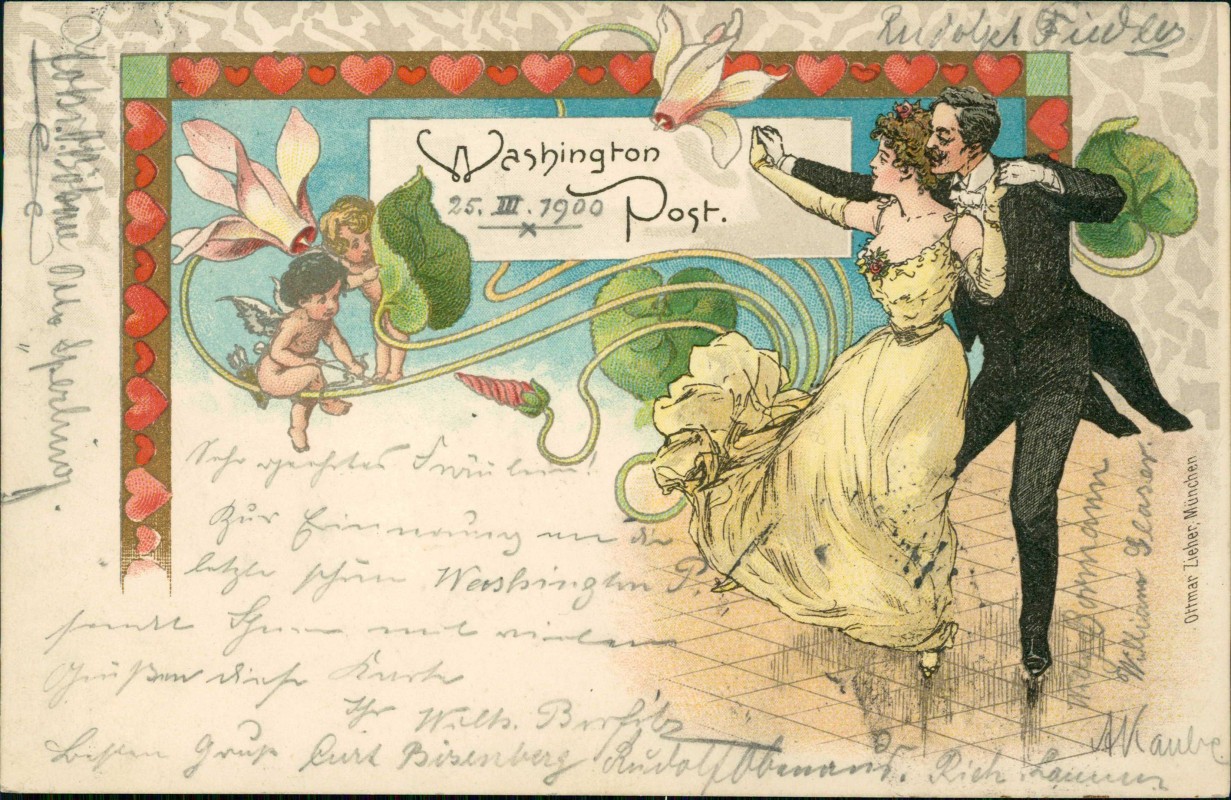 Rudolph Fiedler
Washington
Post.
25. III. 1900
Sehr geehrtes Fräulein!
Zur Erinnerung an die
letzte schöne Washington P.
sendet Ihnen mit vielen
Grüßen diese Karte
Ihr Wilh.
Besten Gruß Curt Bisenberg Rudolf Obmann. Rich.
William Glaser.
Ottmar Zieher, München